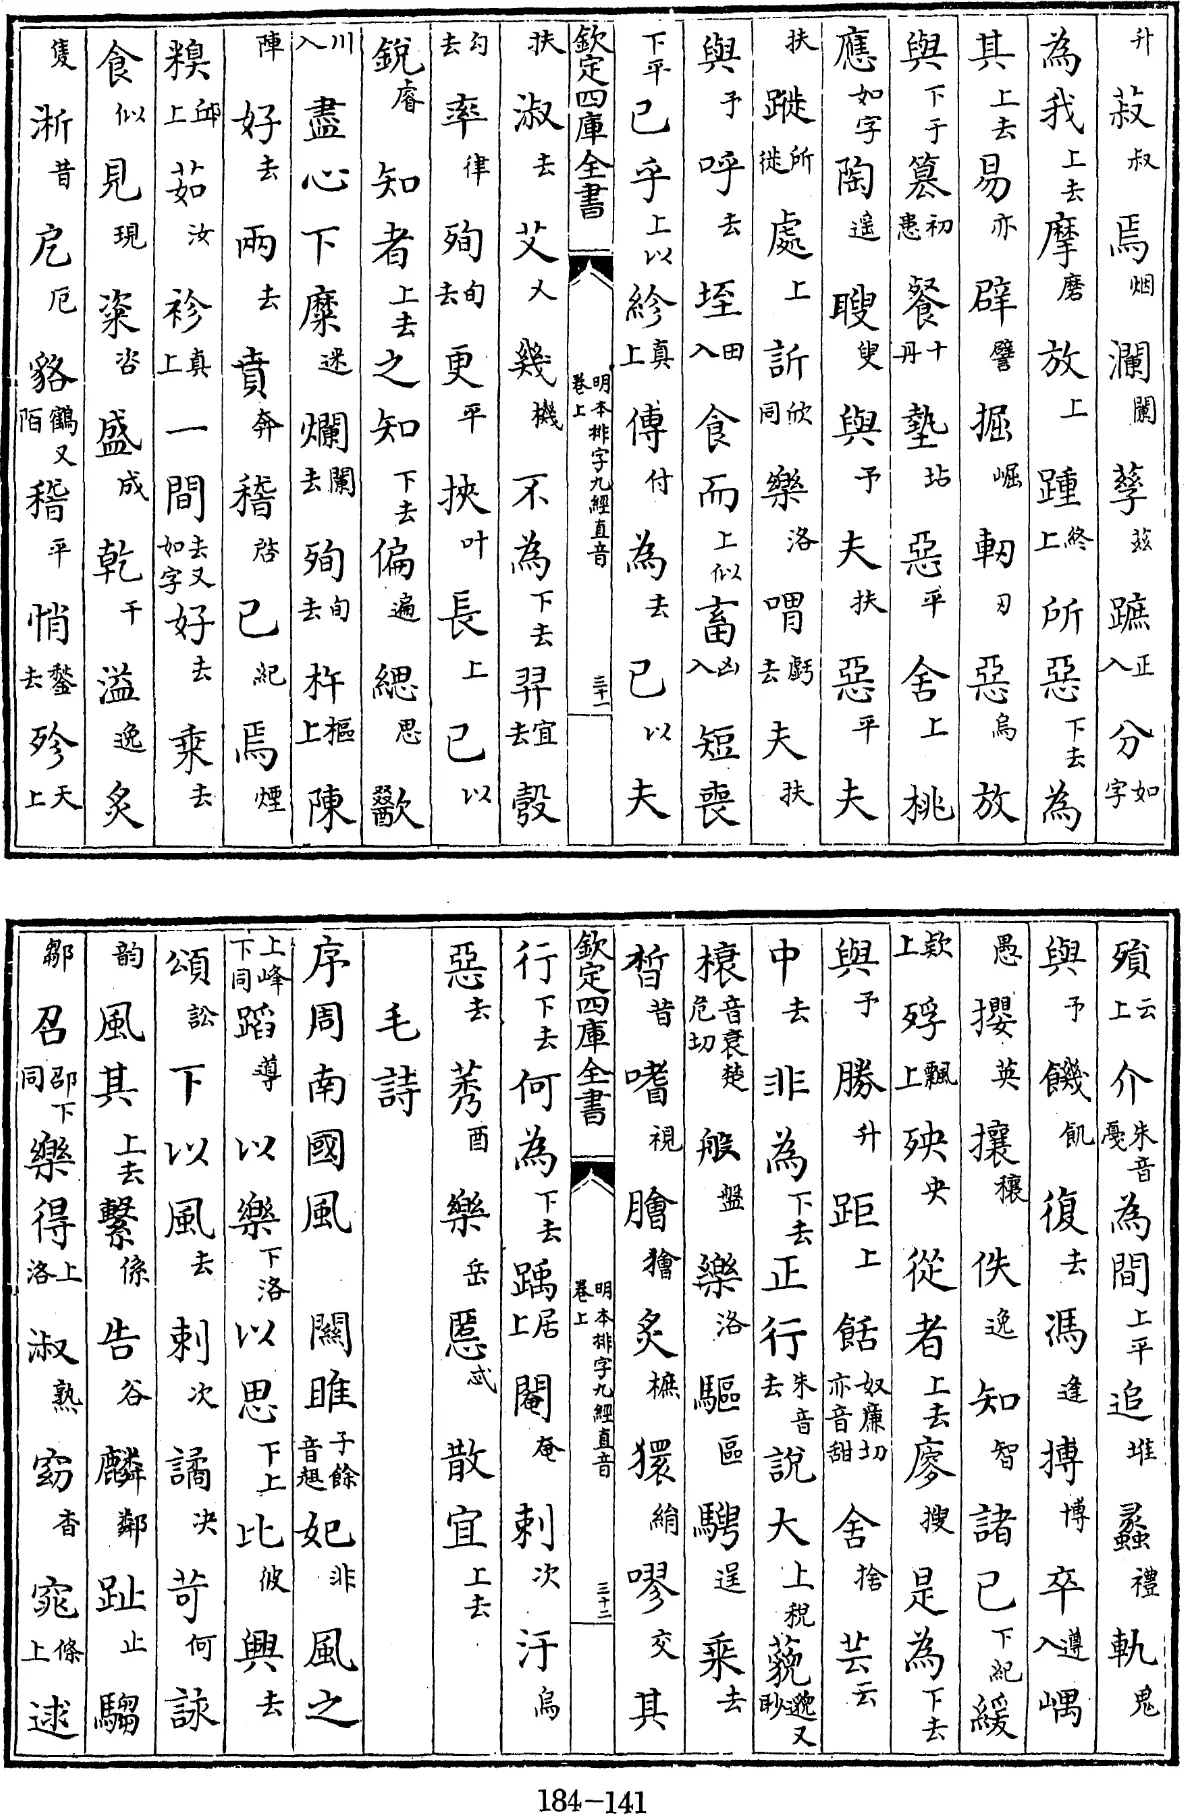 升菽叔焉烟瀾闌孳茲蹠正入分如字
為我上去摩磨放上踵終上所惡下去為
其上去易亦辟譬掘崛軔刃惡烏放
與下于簒初患餐十丹墊坫惡平舍上桃
應如字陶遥瞍叟與予夫扶惡平夫
扶蹝所徙處上訢欣同樂洛喟虧去夫扶
與予呼去垤田入食而上似畜凶入短喪
下平已乎上以紾真上傅付為去已以夫
欽定四庫全書 明本排字九經直音 卷上 三十一
扶淑去艾乂幾機不為下去羿宜去彀
勾去率律殉旬去更平挾叶長上已以
銳睿知者上去之知下去偏遍緦思歠
川入盡心下糜迷爛闌去殉旬去杵樞上陳
陣好去兩去賁奔稽啓已紀焉煙
糗邱上茹汝袗真上一間去又如字好去乘去
食似見現粢咨盛成乾干溢逸炙
隻淅昔戹厄貉鶴又陌稽平悄鍫去殄天上
殞云上介朱音戛為間上平追堆蠡禮軌鬼
與予饑飢復去馮逢搏博卒遵入嵎
愚攖英攘穰佚逸知智諸已下紀緩
欵上殍飄上殃央從者上去廖搜是為下去
與予勝升距上餂奴廉切亦音甜舍捨芸云
中去非為下去正行朱音去說大上税藐邈又眇
榱音衰楚危切般盤樂洛驅區騁逞乘去
晳昔嗜視膾獪炙樜獧絹嘐交其
欽定四庫全書 明本排字九經直音 卷上 三十二
行下去何為下去踽居上閹奄刺次汙烏
惡去莠酉樂岳慝忒散宜上去
毛詩
序周南國風 關雎子餘音趄妃非風之
上峰下同蹈導以樂下洛以思下上比彼興去
頌訟下以風去刺次譎决苛何詠
韵風其上去繫係告谷麟鄰趾止騶
鄒召邵下同樂得上洛淑熟窈杳窕條上逑
184-141